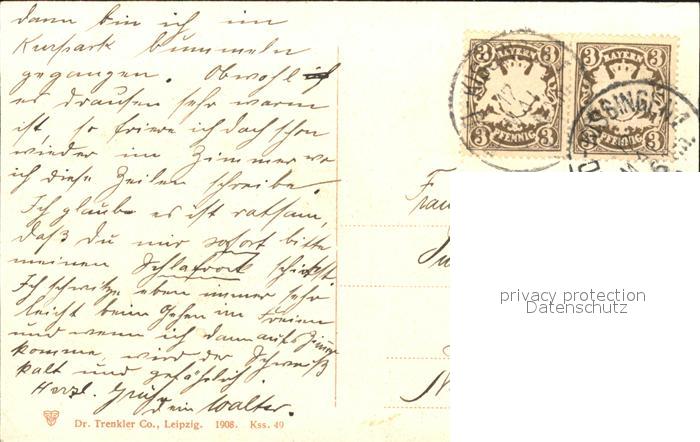 dann bin ich im
Kurpark bummeln
gegangen. Obwohl
es drausen sehr warm
ist, so friere ich doch schon
wieder im Zimmer wo
ich diese Zeilen schreibe.
Ich glaube es ist ratsam,
daß du mir sofort bitte
meinen Schlafrock schickst.
Ich schwitze eben immer sehr
leicht beim Gehen im Freien
und wenn ich dann aufs Zimmer
komme, wird der Schweiß
kalt und gefährlich.
Herzl. Grüße
dein Walter.
Dr. Trenkler Co., Leipzig. 1908. Kss. 49
3 BAYERN 3
3 PFENNIG 3
3 BAYERN 3
3 PFENNIG 3
KISSINGEN
Frau
privacy protection
Datenschutz